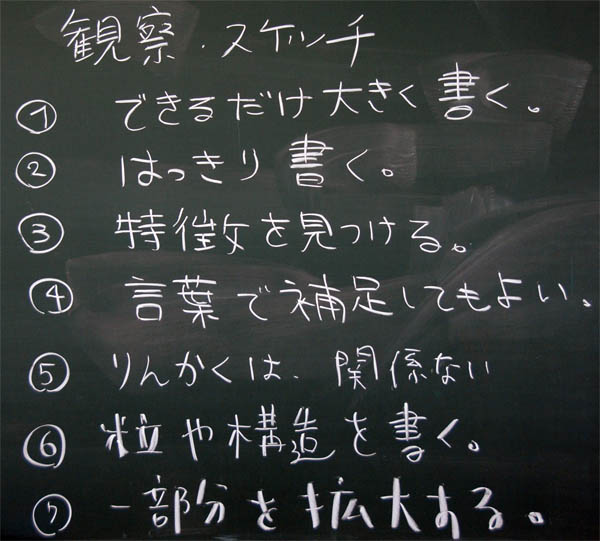 観察・スケッチ
① できるだけ大きく書く。
② はっきり書く。
③ 特徴を見つける。
④ 言葉で補足してもよい。
⑤ りんかくは、関係ない
⑥ 粒や構造を書く。
⑦ 一部分を拡大する。